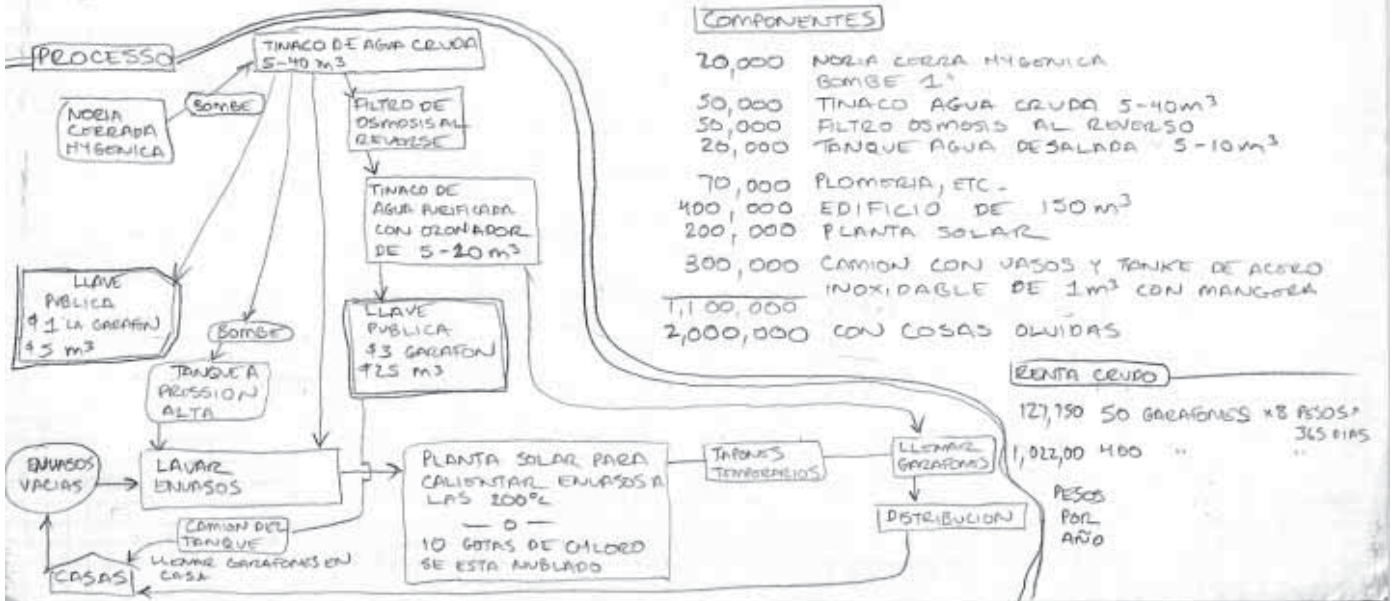 PROCESSO
TINACO DE AGUA CRUDA
5-40 m³
NORIA
CERRADA
HYGENICA
BOMBE
FILTRO DE
OSMOSIS AL
REVERSE
TINACO DE
AGUA PURIFICADA
CON OZONADOR
DE 5-20 m³
LLAVE
PUBLICA
$1 LA GARAFON
$5 m³
LLAVE
PUBLICA
$3 GARAFON
$25 m³
BOMBE
TANQUE A
PRESSION
ALTA
ENVASOS
VACIAS
LAVAR
ENVASOS
PLANTA SOLAR PARA
CALIENTAR ENVASOS A
LAS 200°C
— O —
10 GOTAS DE CHLORO
SE ESTA NUBLADO
TAPONES
TEMPORARIOS
LLENAR
GARAFONES
DISTRIBUCION
CAMION DEL
TANQUE
LLENAR GARAFONES EN
CASA
CASAS
COMPONENTES
20,000 NORIA CERRA HYGENICA
BOMBE 1"
50,000 TINACO AGUA CRUDA 5-40m³
50,000 FILTRO OSMOSIS AL REVERSO
20,000 TANQUE AGUA DESALADA 5-10m³
70,000 PLOMERIA, ETC.
400,000 EDIFICIO DE 150 m³
200,000 PLANTA SOLAR
300,000 CAMION CON VASOS Y TANKE DE ACERO
INOXIDABLE DE 1m³ CON MANGERA
1,100,000
2,000,000 CON COSAS OLVIDAS
RENTA CRUDO
127,750 50 GARAFONES x8 PESOS x
365 DIAS
1,022,00 400 " "
PESOS
POR
AÑO